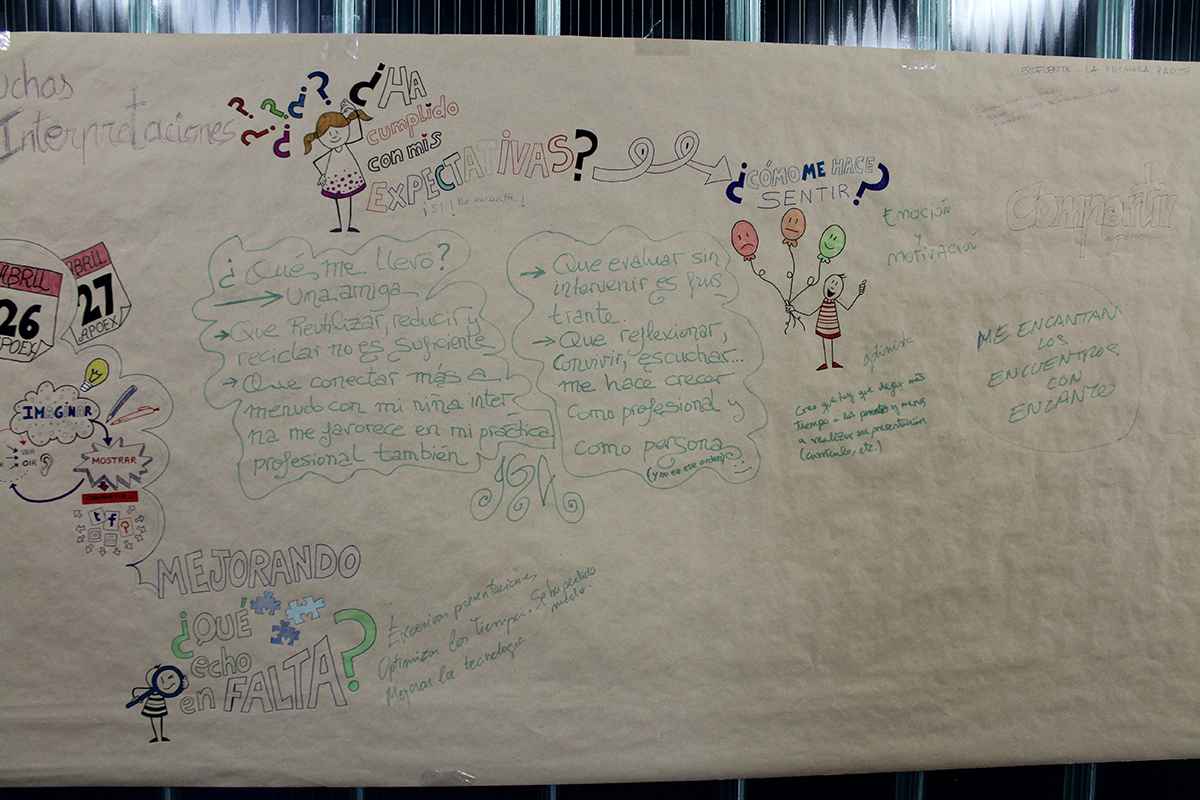 uchas
Interpretaciones
¿HA
cumplido
con mis
EXPECTATIVAS?
¡SI! Me encanta!
¿CÓMO ME HACE
SENTIR?
EXCELENTE LA PRIMERA PARTE
Emoción
y
motivación
Compartir
ABRIL
26
APOEX
ABRIL
27
APOEX
¿Qué me llevo?
Una amiga
Que Reutilizar, reducir y
reciclar no es suficiente
Que conectar más a
menudo con mi niña inter
na me favorece en mi práctica
profesional también
Que evaluar sin
intervenir es frus
trante.
Que reflexionar,
convivir, escuchar...
me hace crecer
como profesional y
como persona
(y no en ese orden)
optimista
Creo que hay que dejar más
tiempo a los y menos
a realizar su presentación
(currículo, etc.)
ME ENCANTAN
LOS
ENCUENTROS
CON
ENCANTO
IMAGINAR
VER
OIR
MOSTRAR
COMPARTIR...
t f
MEJORANDO
¿QUÉ
echo
en FALTA?
Excesivas presentaciones
Optimizar los tiempos. Se ha perdido
mucho.
Mejorar la tecnología